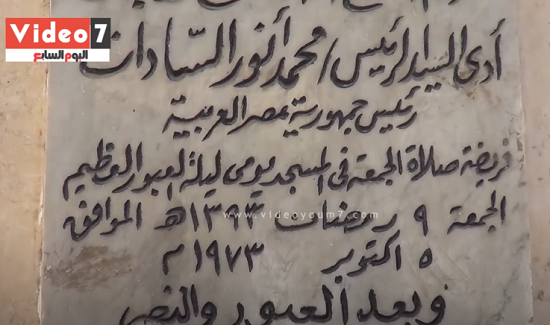 Video 7
اليوم السابع
أدى السيد الرئيس / محمد أنور السادات
رئيس جمهورية مصر العربية
فريضة صلاة الجمعة فى المسجد يومى ليلة العبور العظيم
الجمعة ٩ رمضان ١٣٩٣هـ الموافق
www.videoyoum7.com
٥ أكتوبر ١٩٧٣م
وبعد العبور والنصر